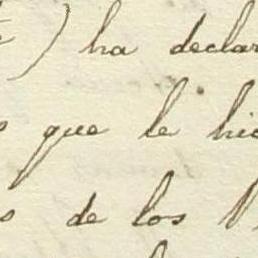 ) ha declar
que le hic
o de los